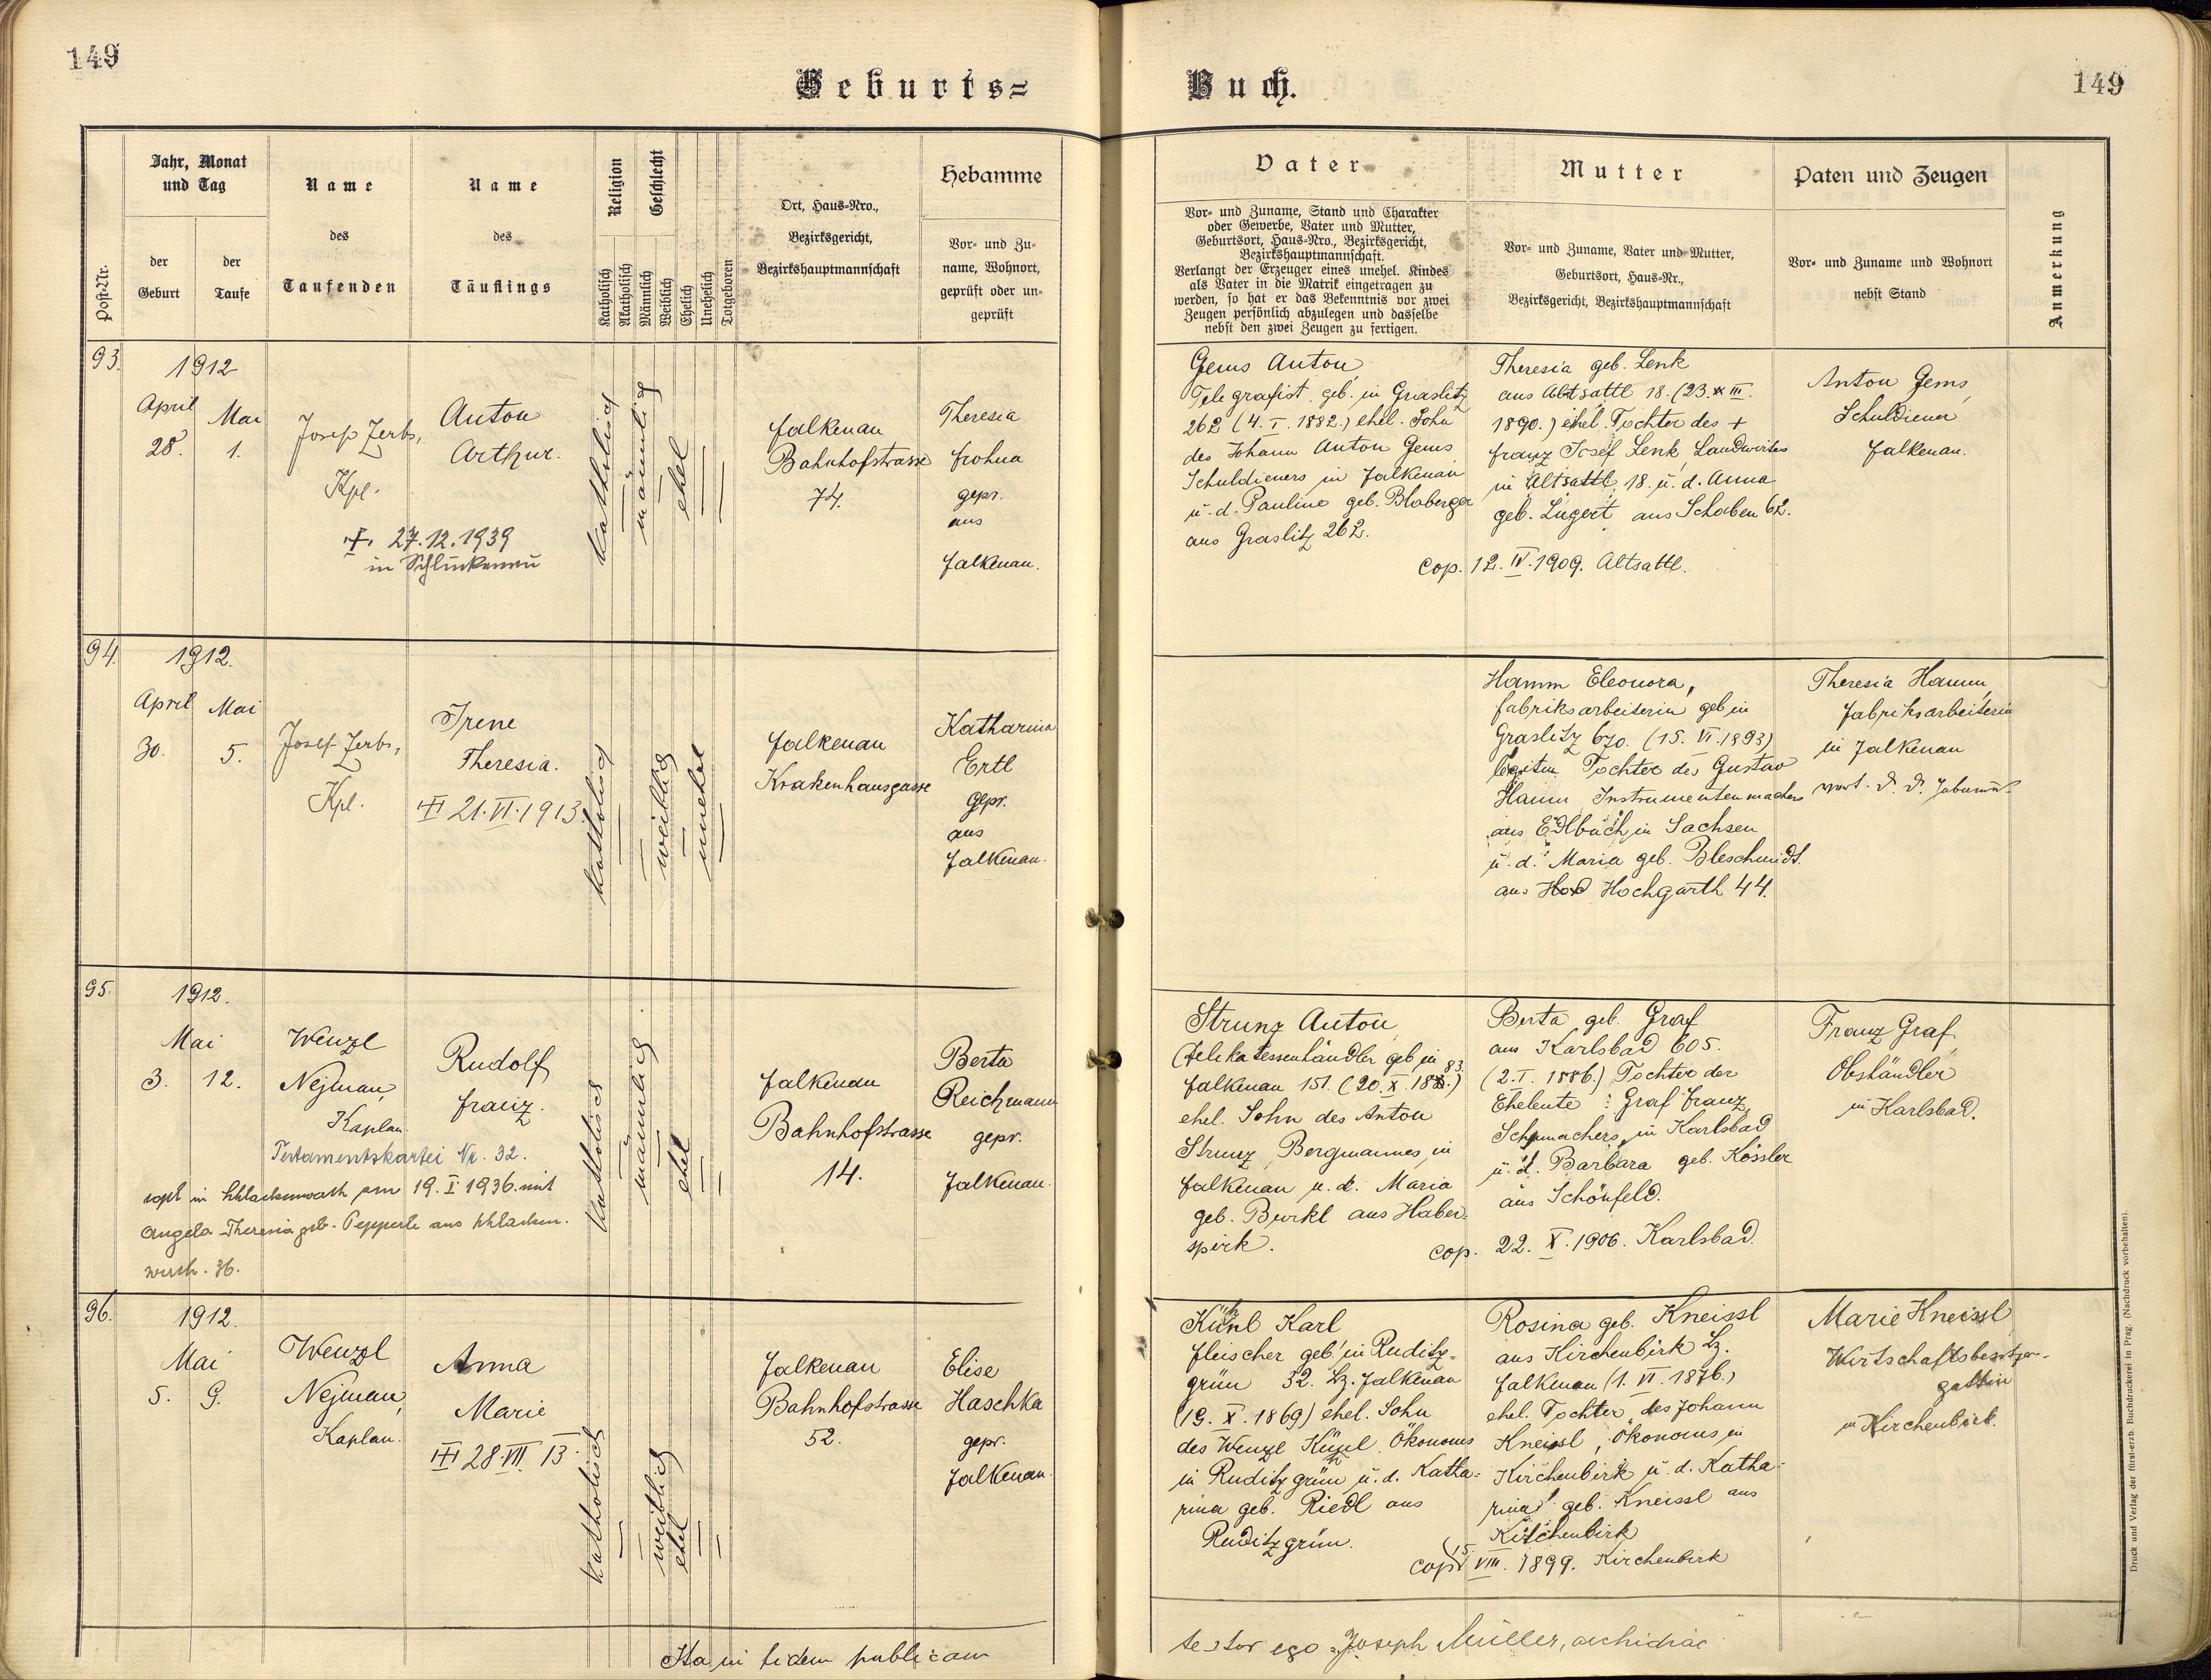 149
Geburts=
Buch.
149
Post-Nr.
Jahr, Monat
und Tag
der
Geburt
der
Taufe
Name
des
Taufenden
Name
des
Täuflings
Religion
Katholisch
Akatholisch
Geschlecht
Männlich
Weiblich
Ehelich
Unehelich
Totgeboren
Ort, Haus-Nro.,
Bezirksgericht,
Bezirkshauptmannschaft
Hebamme
Vor- und Zu-
name, Wohnort,
geprüft oder un-
geprüft
Vater
Vor- und Zuname, Stand und Charakter
oder Gewerbe, Vater und Mutter,
Geburtsort, Haus-Nro., Bezirksgericht,
Bezirkshauptmannschaft.
Verlangt der Erzeuger eines unehel. Kindes
als Vater in die Matrik eingetragen zu
werden, so hat er das Bekenntnis vor zwei
Zeugen persönlich abzulegen und dasselbe
nebst den zwei Zeugen zu fertigen.
Mutter
Vor- und Zuname, Vater und Mutter,
Geburtsort, Haus-Nr.,
Bezirksgericht, Bezirkshauptmannschaft
Paten und Zeugen
Vor- und Zuname und Wohnort
nebst Stand
Anmerkung
93.
1912
April
28.
Mai
1.
Josef Zerbs,
Kpl.
Anton
Arthur.
27.12.1939
in Schluckenau
katholisch
männlich
ehel
Falkenau
Bahnhofstrasse
74.
Theresia
Frohna
gepr.
aus
Falkenau.
Gems Anton
Telegrafist geb. in Graslitz
262 (4. I. 1882.) ehel. Sohn
des Johann Anton Gems
Schuldieners in Falkenau
u. d. Pauline geb. Blaberger
aus Graslitz 262.
Theresia geb. Lenk
aus Altsattl 18. (23. III.
1890.) ehel. Tochter des +
Franz Josef Lenk, Landwirtes
in Altsattl 18 u. d. Anna
geb. Lugert aus Schaben 62.
cop. 12. IV. 1909. Altsattl.
Anton Gems,
Schuldiener
Falkenau.
94.
1912.
April
30.
Mai
5.
Josef Zerbs,
Kpl.
Irene
Theresia.
21. VI. 1913.
katholisch
weiblich
unehel
Falkenau
Krakenhausgasse
Katharina
Ertl
gepr.
aus
Falkenau.
Hamm Eleonora,
Fabriksarbeiterin geb in
Graslitz 670. (15. VI. 1893)
legitim. Tochter des Gustav
Hamm Instrumentenmachers
aus in Sachsen
u. d. Maria geb. Bleschmidt.
aus Hochgarth 44.
Theresia Hamm,
Fabriksarbeiterin
in Falkenau
95.
1912.
Mai
3.
12.
Wenzl
Nejman,
Kaplan.
Rudolf
Franz.
Testamentskartei Nr. 32.
copl in Schlackenwerth am 19. I 1936. mit
Angela Theresia geb. Pepperle aus Schlacken-
werth. 36.
katholisch
männlich
ehel
Falkenau
Bahnhofstrasse
14.
Berta
Reichmann
gepr.
Falkenau.
Strunz Anton
Delikatessenhändler geb in
Falkenau 151. (20. X. 1883.)
ehel. Sohn des Anton
Strunz, Bergmannes in
Falkenau u. d. Maria
geb. Burkl aus Haber-
spirk.
Berta geb. Graf
aus Karlsbad 605.
(2. I. 1886.) Tochter der
Eheleute: Graf Franz,
Schumachers in Karlsbad
u. d. Barbara geb. Kössler
aus Schönfeld.
cop. 22. X. 1906. Karlsbad.
Franz Graf
Obshändler
in Karlsbad.
96.
1912.
Mai
5.
9.
Wenzl
Nejman,
Kaplan.
Anna
Marie
28. VII 13.
katholisch
weiblich
ehel
Falkenau
Bahnhofstrasse
52.
Elise
Haschka
gepr.
Falkenau.
Kühnl Karl
Fleischer geb. in Ruditz-
grün 32. Bz. Falkenau
(19. X. 1869) ehel. Sohn
des Wenzl Kühnl Ökonoms
in Ruditzgrün u. d. Katha-
rina geb. Riedl aus
Ruditzgrün.
Rosina geb. Kneissl
aus Kirchenbirk Bz.
Falkenau (1. VI. 1876.)
ehel. Tochter des Johann
Kneissl, Ökonoms in
Kirchenbirk u. d. Katha-
rina geb. Kneissl aus
Kirchenbirk
cop. 15. VIII. 1899. Kirchenbirk
Marie Kneissl
Wirtschaftsbesitzers-
gattin
in Kirchenbirk.
Ita in fidem publicam
testor ego Joseph Müller, archidiac
Druck und Verlag der fürst-erzb. Buchdruckerei in Prag. (Nachdruck vorbehalten).